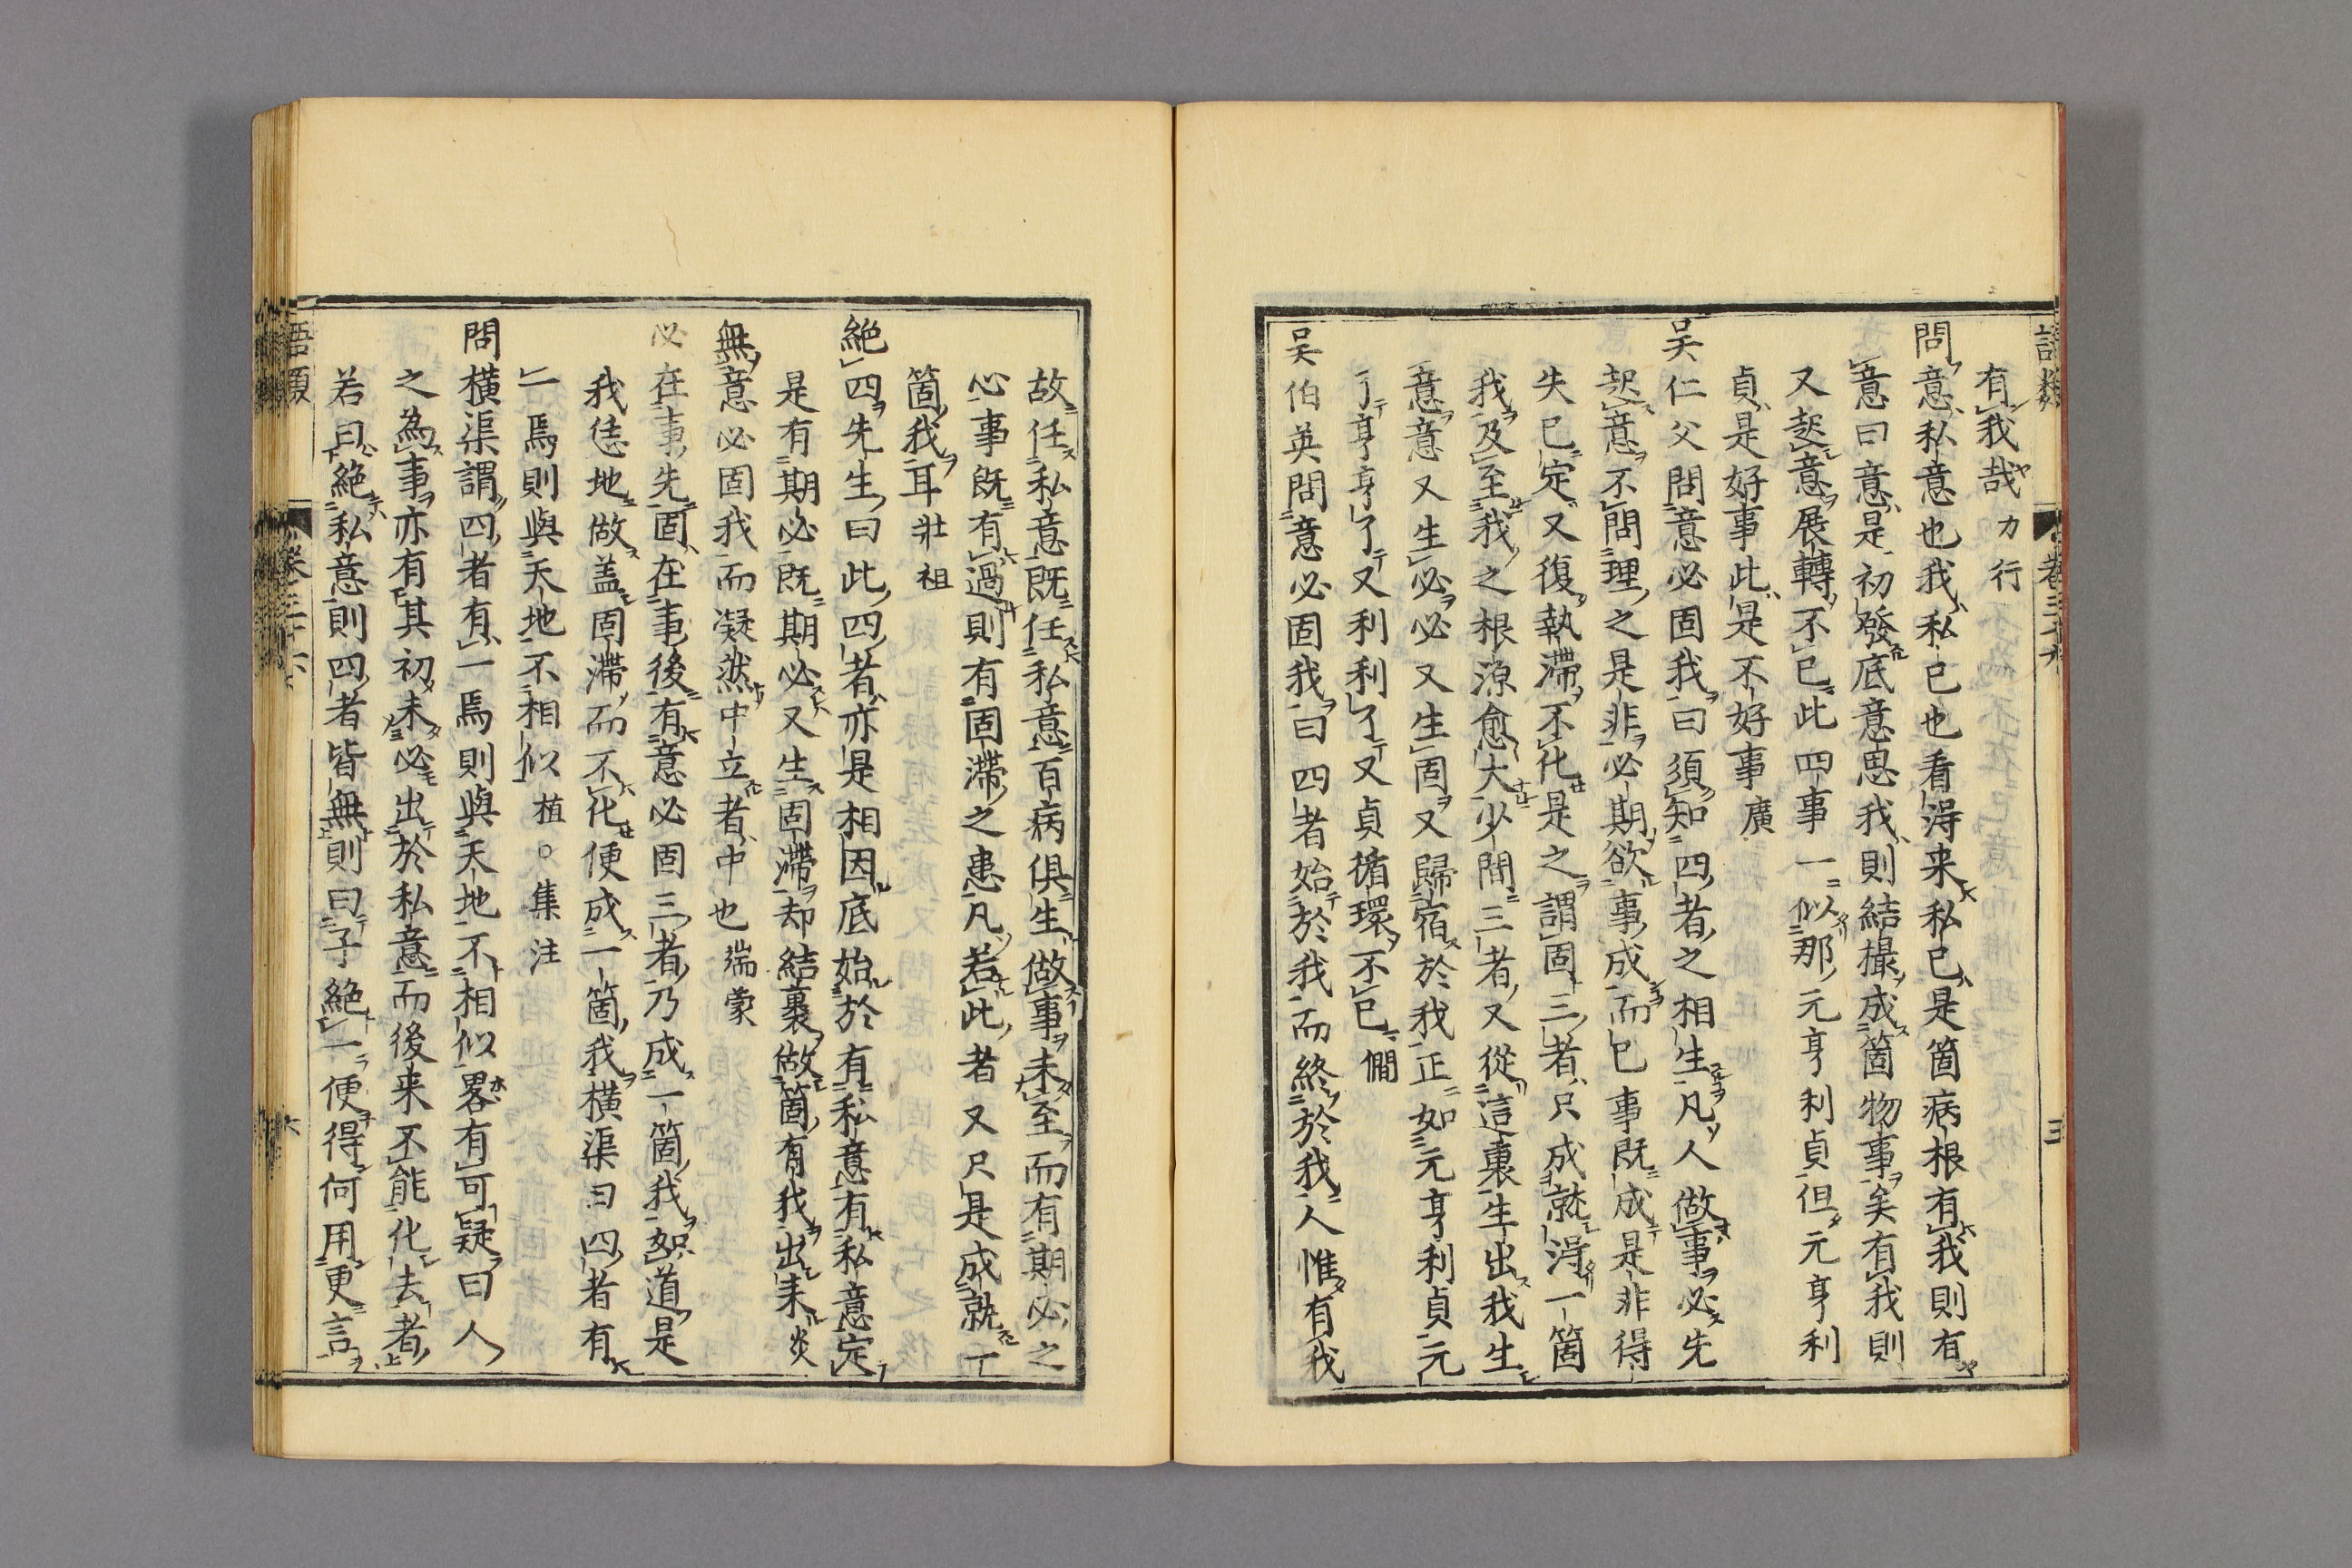 有我哉力行
問意私意也我私己也看得来私已是箇病根有我則有
意曰意是初發底意思我則結撮成箇物事矣有我則
又起意展轉不已此四事一似那元亨利貞但元亨利
貞是好事此是不好事廣
吴仁父問意必固我曰須知四者之相生凡人做事必先
起意不問理之是非必期欲事成而已事既成是非得
失已定又復執滯不化是之謂固三者只成就得一箇
我及至我之根源愈大少間三者又從這裏生出我生
意意又生必必又生固又歸宿於我正如元亨利貞元
了亨亨了又利利了又貞循環不已僩
吴伯英問意必固我曰四者始於我而終於我人惟有我
故任私意既任私意百病俱生做事未至而有期必之
心事既有過則有固滯之患凡若此者又只是成就一
箇我耳壮祖
絶四先生曰此四者亦是相因底始於有私意有私意定
是有期必既期必又生固滯却結裹做箇有我出来炎
無意必固我而凝然中立者中也端蒙
必在事先固在事後有意必固三者乃成一箇我如道是
我恁地做盖固滯而不化便成一箇我横渠曰四者有
一焉則與天地不相似植○集注
問横渠謂四者有一焉則與天地不相似畧有可疑曰人
之為事亦有其初未必出於私意而後来不能化去者
若曰絶私意則四者皆無則曰子絶一便得何用更言
語類 卷三十六